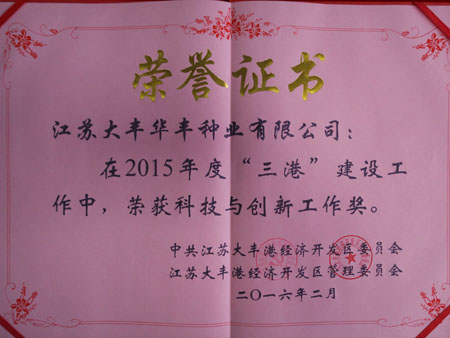 荣誉证书
江苏大丰华丰种业有限公司：
在2015年度“三港”建设工
作中，荣获科技与创新工作奖。
中共江苏大丰港经济开发区委员会
江苏大丰港经济开发区管理委员会
二〇一六年二月